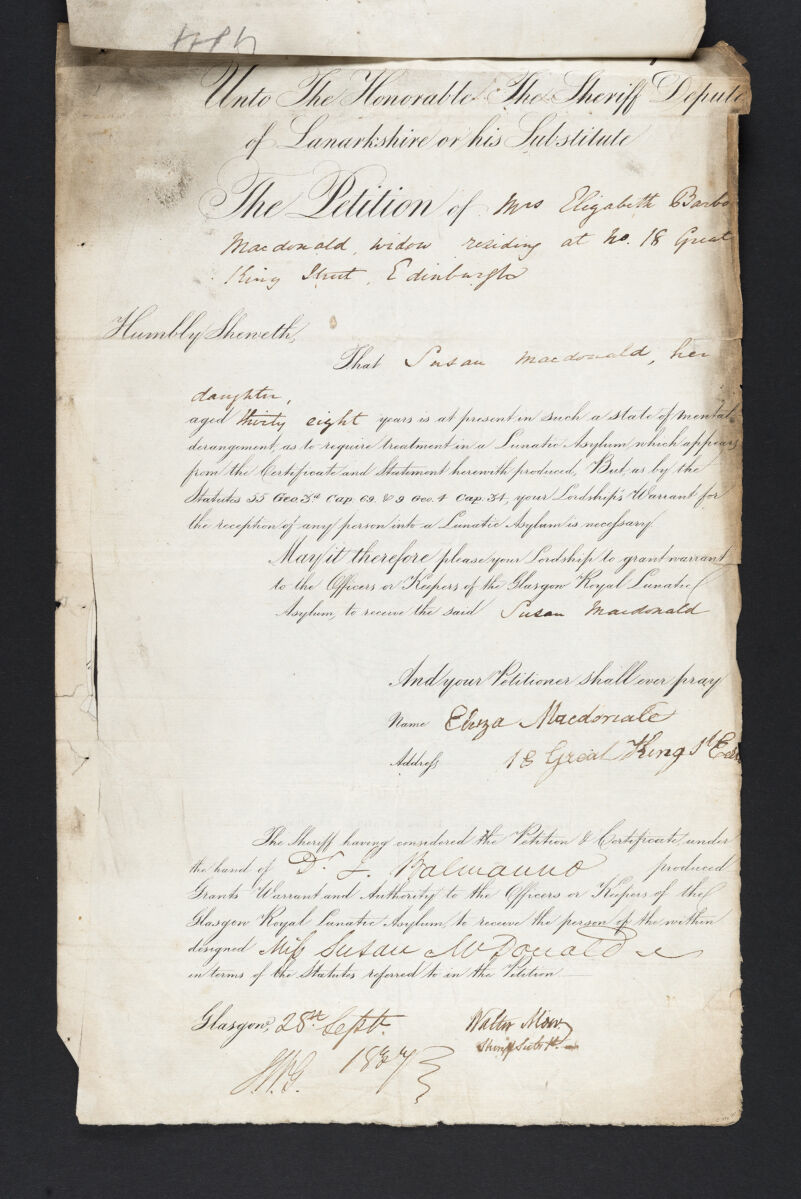 Unto The Honorable The Sheriff Depute
of Lanarkshire or his Substitute
The Petition of Mrs Elizabeth Barbo
Macdonald, widow residing at No. 18 Great
King Street, Edinburgh
Humbly Sheweth,
That Susan Macdonald, her
daughter,
aged thirty eight years is at present in such a state of mental
derangement, as to require treatment in a Lunatic Asylum, which appears
from the Certificate and Statement herewith produced, But, as by the
Statutes 55 Geo. 3rd Cap. 69. & 9 Geo. 4 Cap. 34, your Lordship's Warrant for
the reception of any person into a Lunatic Asylum is necessary.
May it therefore please your Lordship to grant warrant
to the Officers or Keepers of the Glasgow Royal Lunatic
Asylum, to receive the said Susan Macdonald
And your Petitioner shall ever pray
Name Eliza Macdonald
Address 18 Great King St Edi
The Sheriff having considered the Petition & Certificate, under
the hand of Dr. J. Balmanno produced
Grants Warrant and Authority to the Officers or Keepers of the
Glasgow Royal Lunatic Asylum, to receive the person of the within
designed Miss Susan McDonald
in terms of the Statutes referred to in the Petition
Glasgow, 28th Septr. Walter Moir
Sheriff Subst.
18